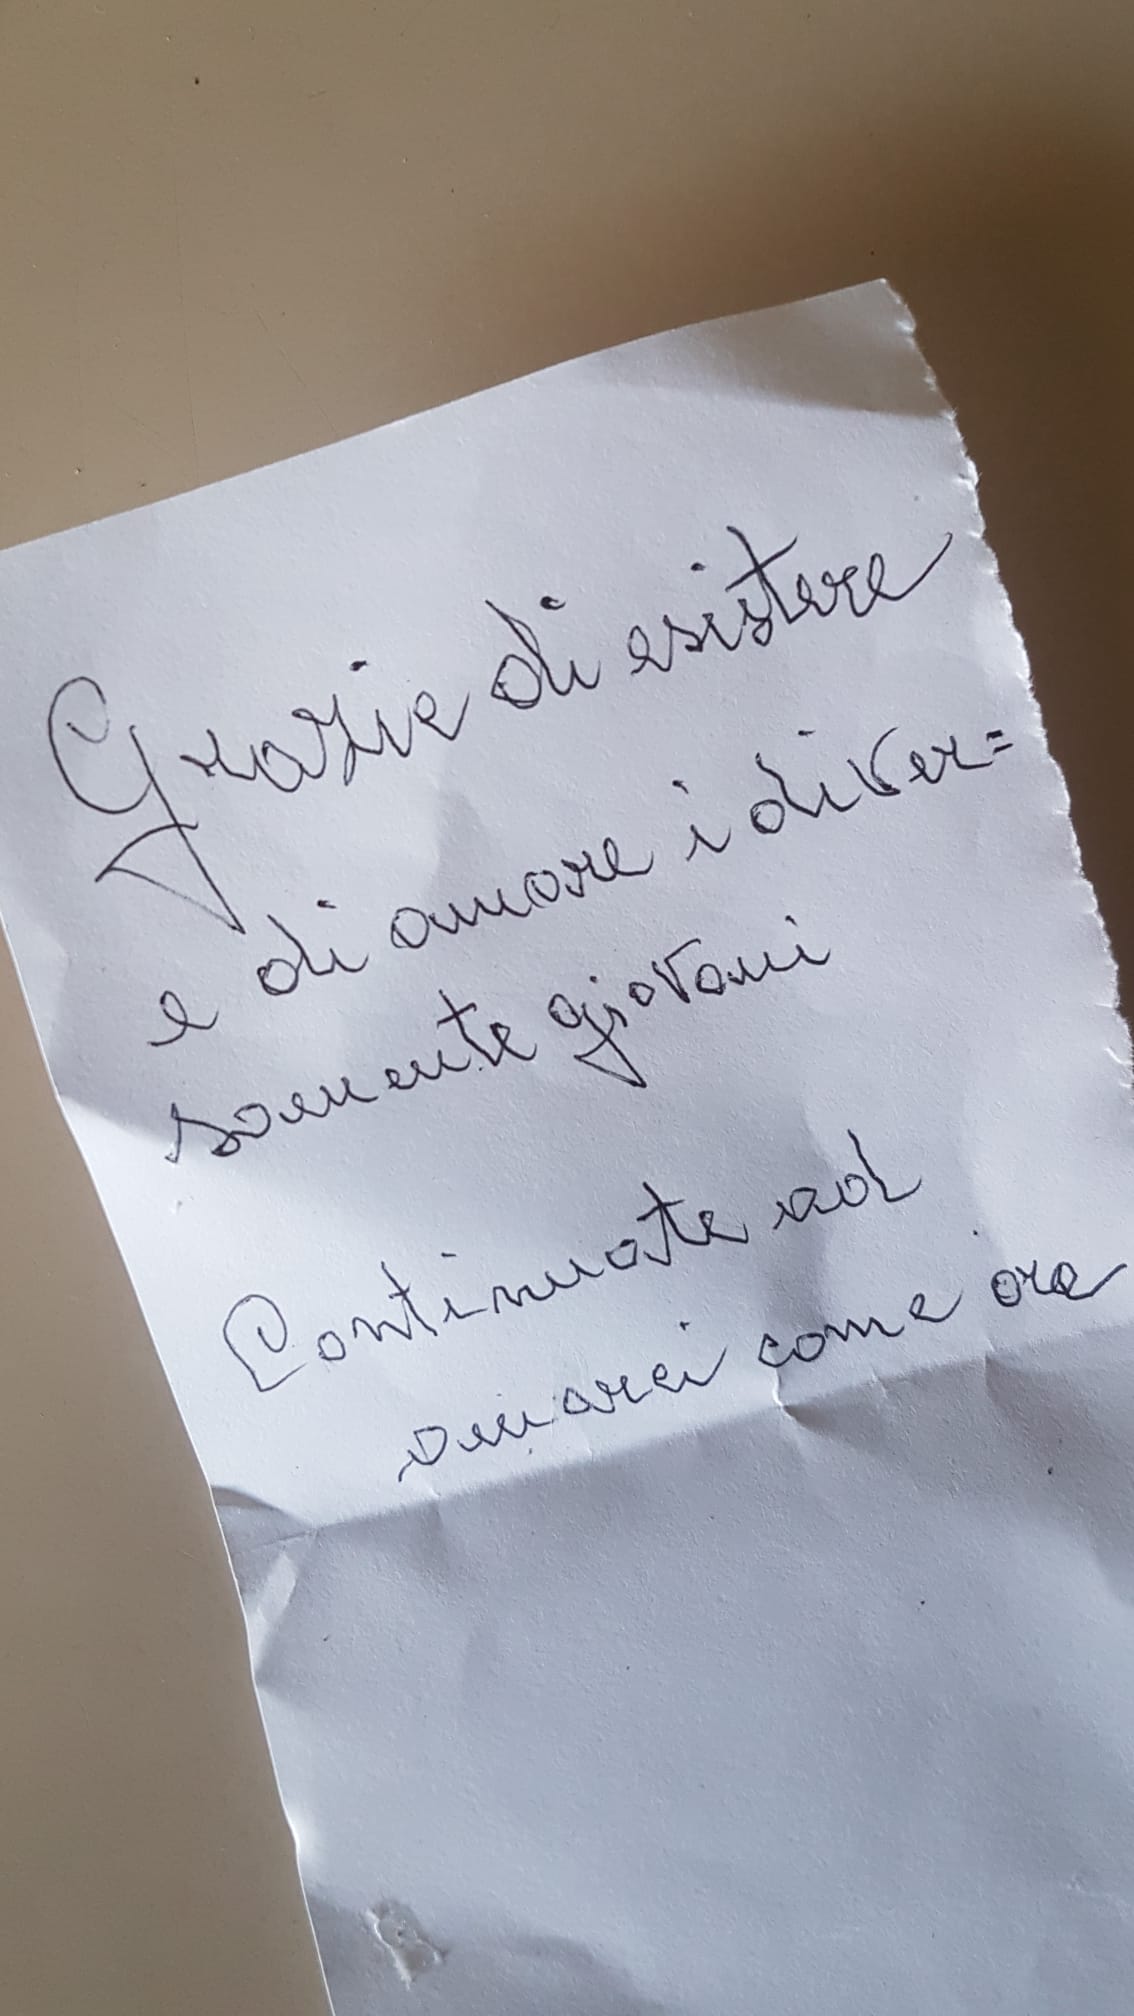 Grazie di esistere
e di amare i diver=
samente giovani
Continuate ad
amarci come ora